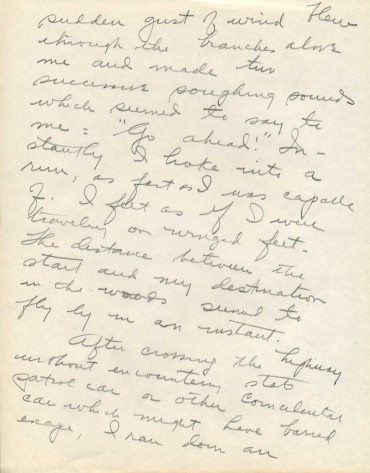 sudden gust of wind blew
through the branches above
me and made two
successive soughing sounds
which seemed to say to
me: "Go ahead!" In-
stantly I broke into a
run, as fast as I was capable
of. I felt as if I were
traveling on winged feet.
The distance between the
start and my destination
in the woods seemed to
fly by in an instant.
After crossing the highway
without encountering state
patrol car or other coincidental
car which might have barred
escape, I ran down an